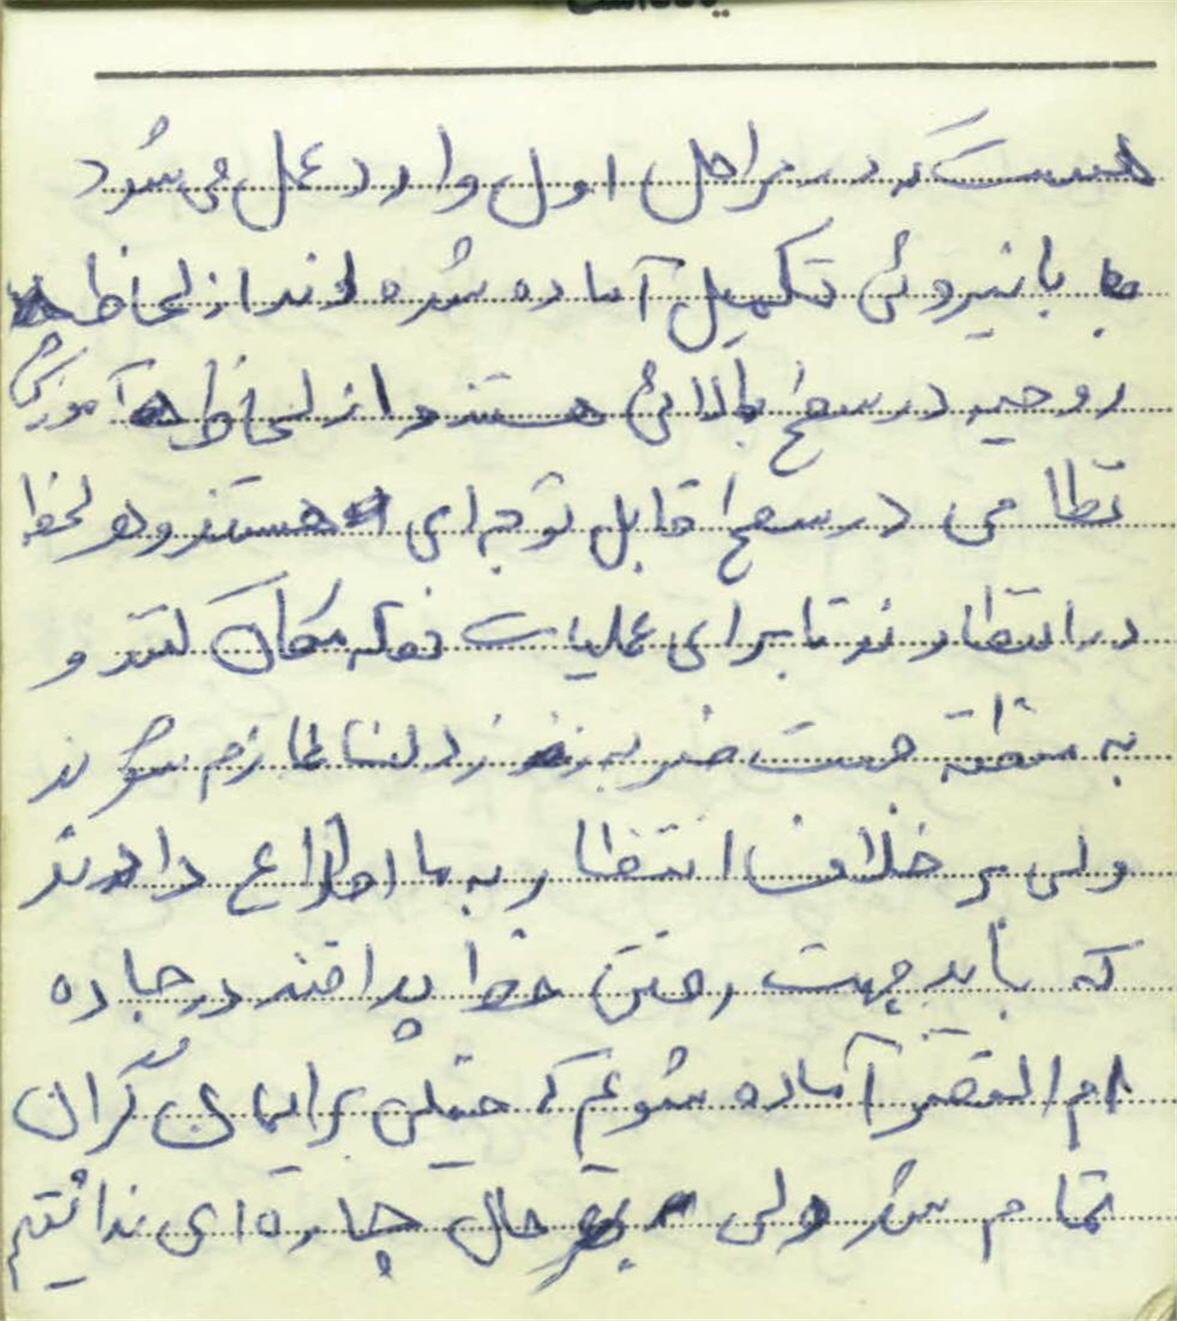 هست که در مراحل اول وارد عمل می شود
با نیروئی تکمیل آماده شده اند از لحاظ
روحیه در سطح بالائی هستند و از لحاظ آموزش
نظامی در سطح قابل توجه ای هستند و هر لحظه
در انتظارند تا برای عملیات نقل مکان کنند و
به منطقه جهت ضربه زدن لشا عازم شوند
ولی بر خلاف انتظار به ما اطلاع دادند
که باید جهت رفتن خط پدافند در جاده
ام القصر آماده شویم که خیلی برایمان گران
تمام شد ولی بهر حال چاره ای نداشتیم